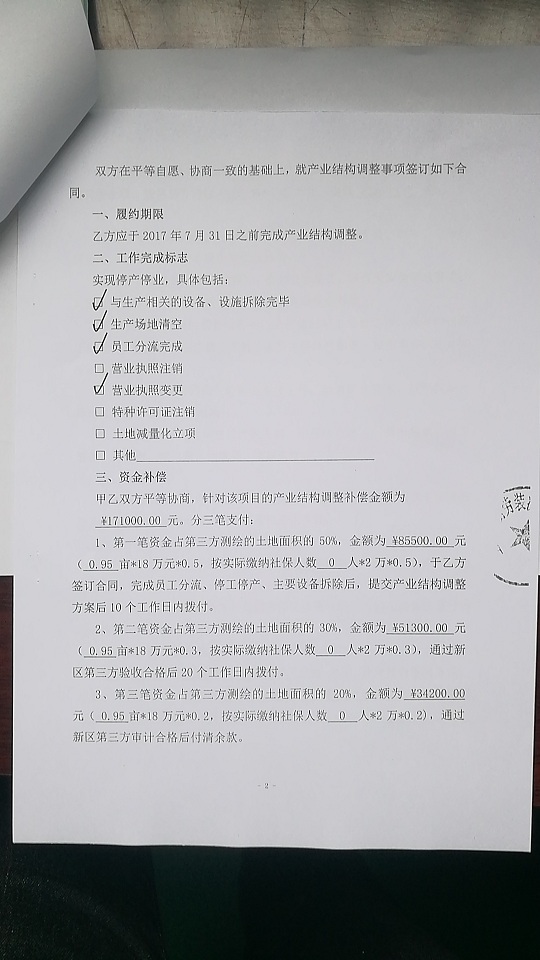 双方在平等自愿、协商一致的基础上，就产业结构调整事项签订如下合
同。
一、履约期限
乙方应于 2017 年 7 月 31 日之前完成产业结构调整。
二、工作完成标志
实现停产停业，具体包括：
☑ 与生产相关的设备、设施拆除完毕
☑ 生产场地清空
☑ 员工分流完成
□ 营业执照注销
☑ 营业执照变更
□ 特种许可证注销
□ 土地减量化立项
□ 其他
三、资金补偿
甲乙双方平等协商，针对该项目的产业结构调整补偿金额为
¥171000.00 元。分三笔支付：
1、第一笔资金占第三方测绘的土地面积的 50%，金额为 ¥85500.00 元
（ 0.95 亩*18 万元*0.5，按实际缴纳社保人数 0 人*2 万*0.5），于乙方
签订合同，完成员工分流、停工停产、主要设备拆除后，提交产业结构调整
方案后 10 个工作日内拨付。
2、第二笔资金占第三方测绘的土地面积的 30%，金额为 ¥51300.00 元
（ 0.95 亩*18 万元*0.3，按实际缴纳社保人数 0 人*2 万*0.3），通过新
区第三方验收合格后 20 个工作日内拨付。
3、第三笔资金占第三方测绘的土地面积的 20%，金额为 ¥34200.00
元（ 0.95 亩*18 万元*0.2，按实际缴纳社保人数 0 人*2 万*0.2），通过
新区第三方审计合格后付清余款。
- 2 -